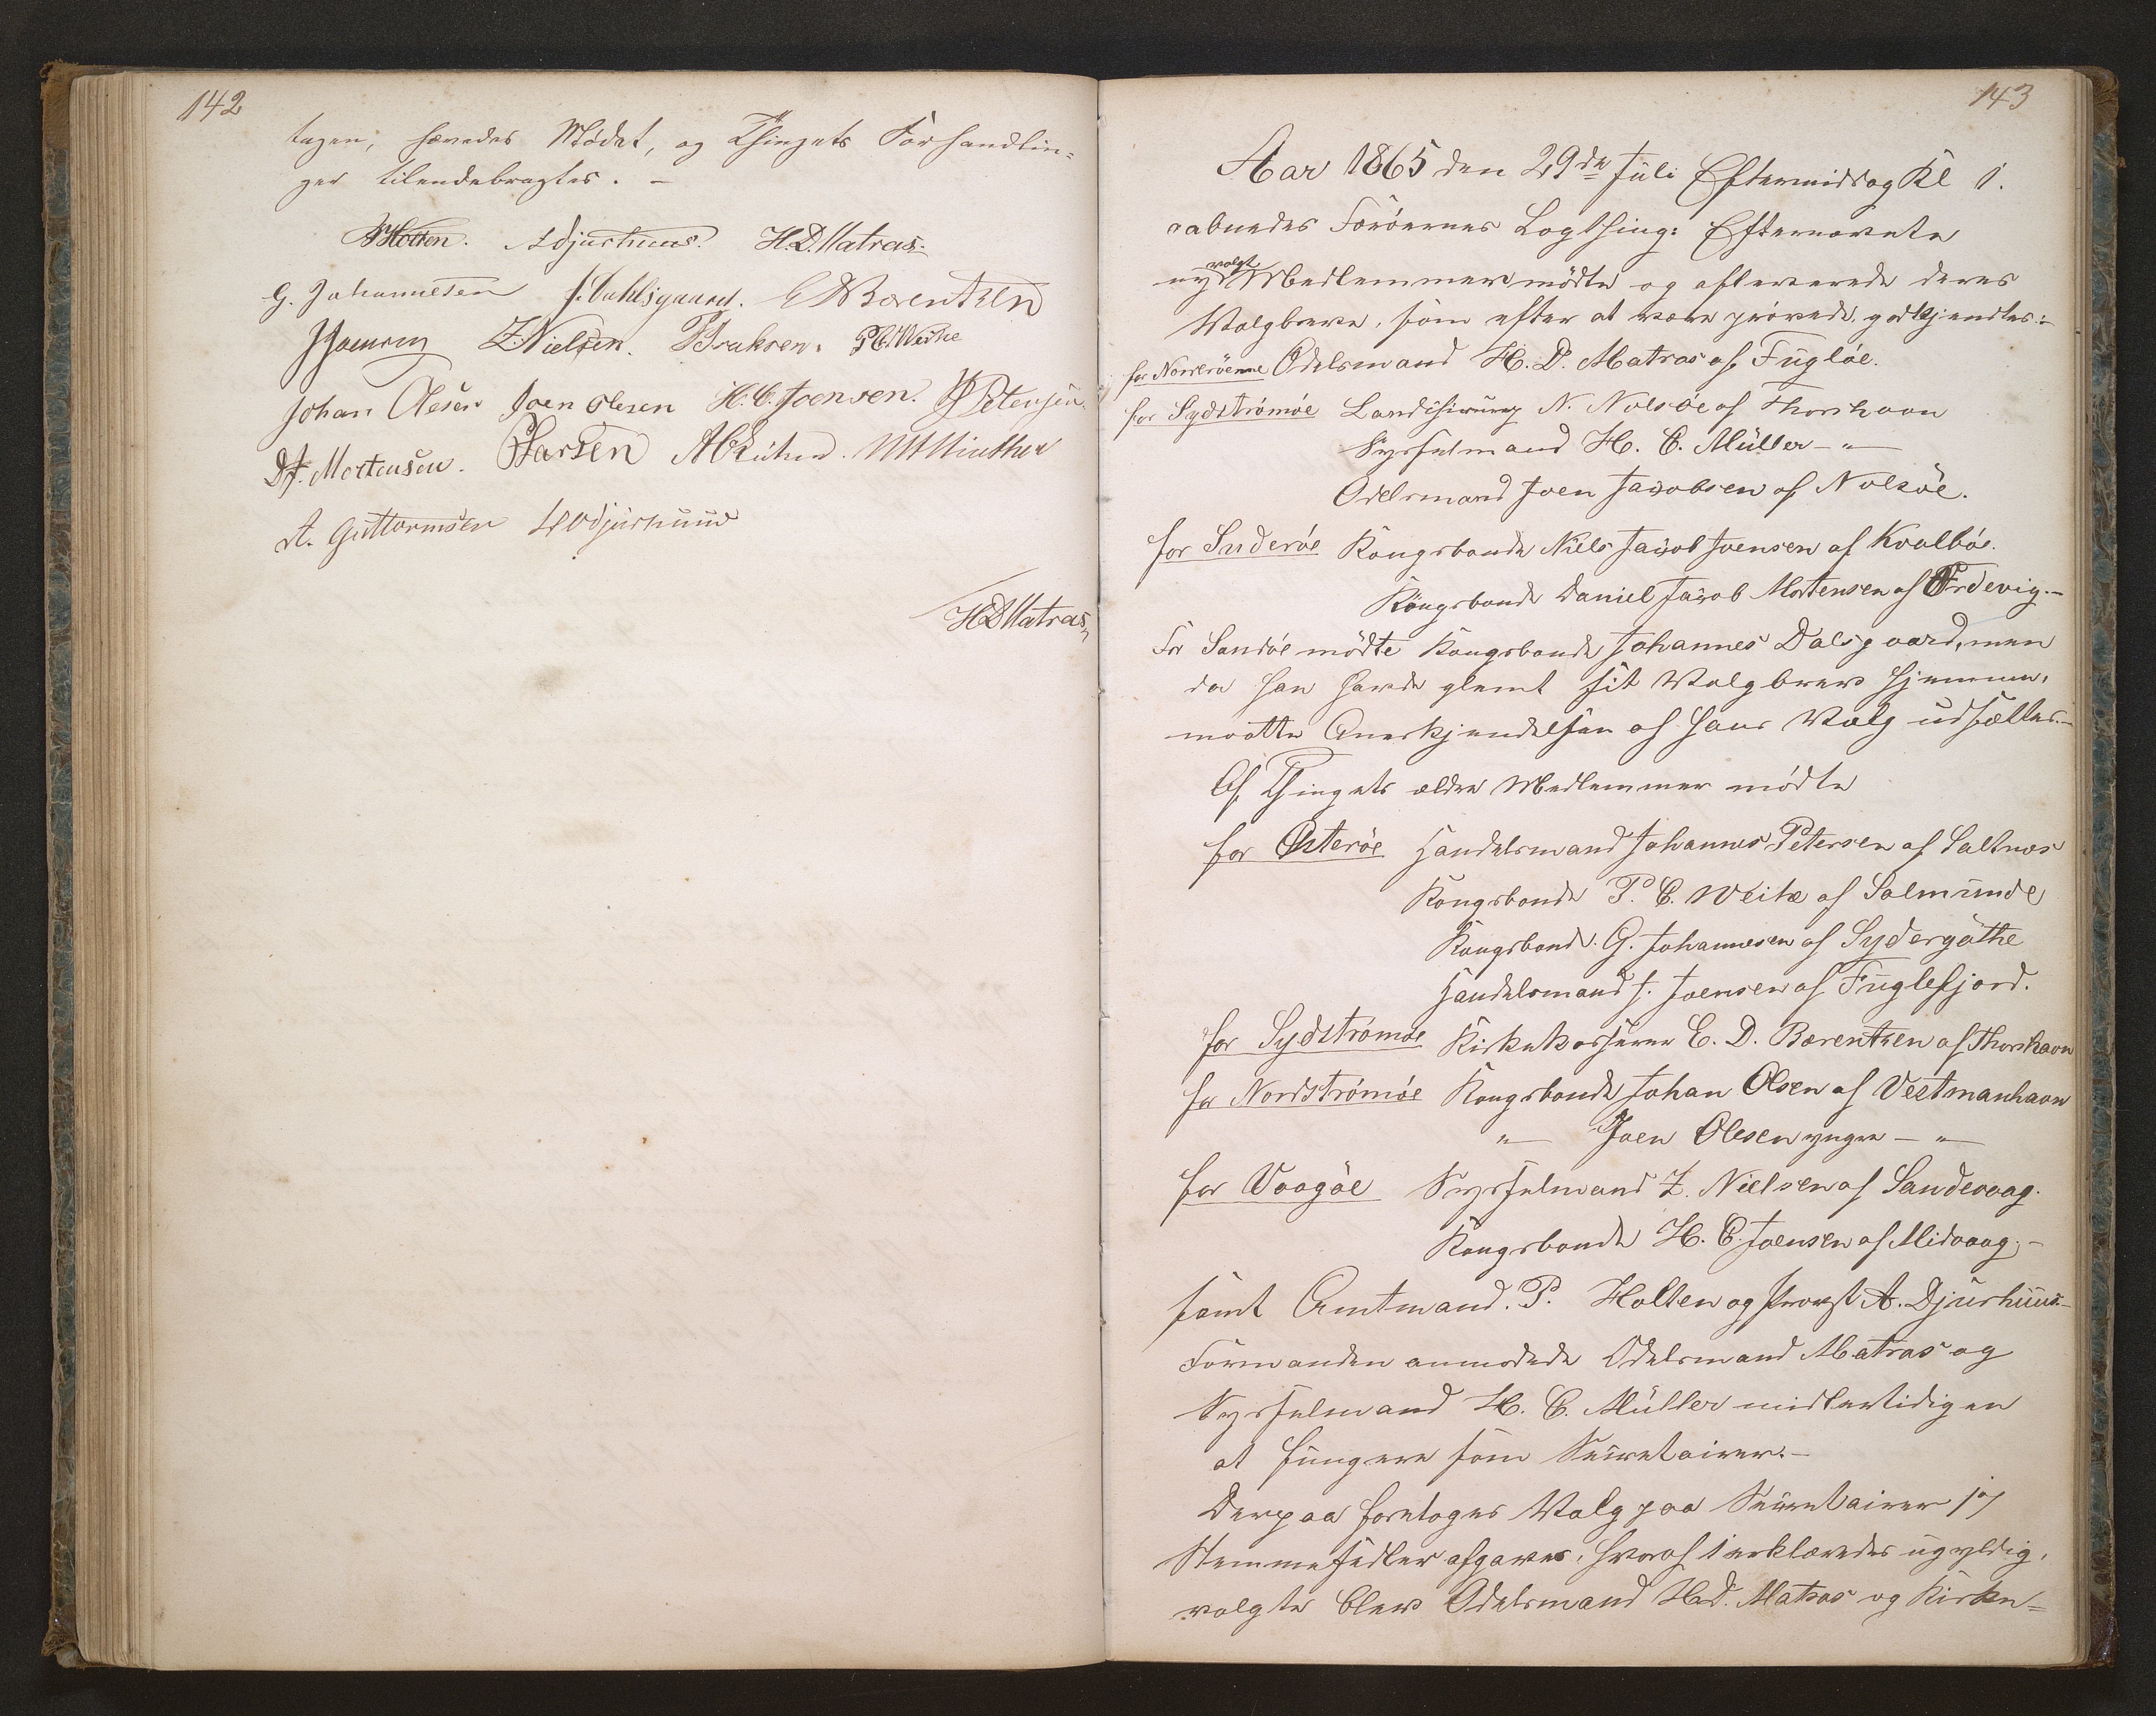 142
tagen, hævedes Mødet, og Thingets Forhandlin=
ger tilendebragtes. —
PHolten. ADjurhuus. H.D.Matras.
G. Johannesen J. Dahlsgaard. EDBærentzen
Z.Nielsen. PIsaksen. P.C.Weihe
Johan Olesen Joen Olesen H.C.Joensen. Petersen.
D.J. Mortensen. Larsen M Winther
A. Guttormsen Djurhuus
HDMatras
143
Aar 1865 den 29de Juli Eftermiddag Kl 1.
aabnedes Færøernes Lagthing: Efternævnte
nyvalgte Medlemmer mødte og afleverede deres
Valgbreve, som efter at være prøvede, godkjendtes:-
for Norderøerne Odelsmand H. D. Matras af Fugløe.
for Sydstrømøe Landchirurg N. Nolsøe af Thorshavn
Sysselmand H. C. Müller — " —
Odelsmand Joen Jacobsen af Nolsøe.
for Suderøe Kongsbonde Niels Jacob Joensen af Kvalbøe.
Kongsbonde Daniel Jacob Mortensen af Ordevig. —
For Sandøe mødte Kongsbonde Johannes Dalsgaard, men
da han havde glemt sit Valgbrev hjemme,
maatte Anerkjendelsen af hans Valg udsættes. —
Af Thingets ældre Medlemmer mødte
for Østerøe Handelsmand Johannes Petersen af Saltnæs
Kongsbonde P. C. Weihe af Salmunde
Kongsbonde G. Johannesen af Sydergøthe
Handelsmand J. Joensen af Fuglefjord.
for Sydstrømøe Kirkekasserer E. D. Bærentzen af Thorshavn
for Nordstrømøe Kongsbonde Johan Olesen af Vestmanhavn
" — Joen Olesen yngre — " —
for Vaagøe Sysselmand Z. Nielsen af Sandevaag.
Kongsbonde H. C. Joensen af Midvaag. —
samt Amtmand P. Holten og Provst A. Djurhuus. —
Formanden anmodede Odelsmand Matras og
Sysselmand H. C. Müller midlertidigen
at fungere som Secretairer. —
Derpaa foretoges Valg paa Secretairer 17
Stemmesedler afgaves, hvoraf 1 erklæredes ugyldig,
valgte blev Odelsmand H.D. Matras og Kirke=